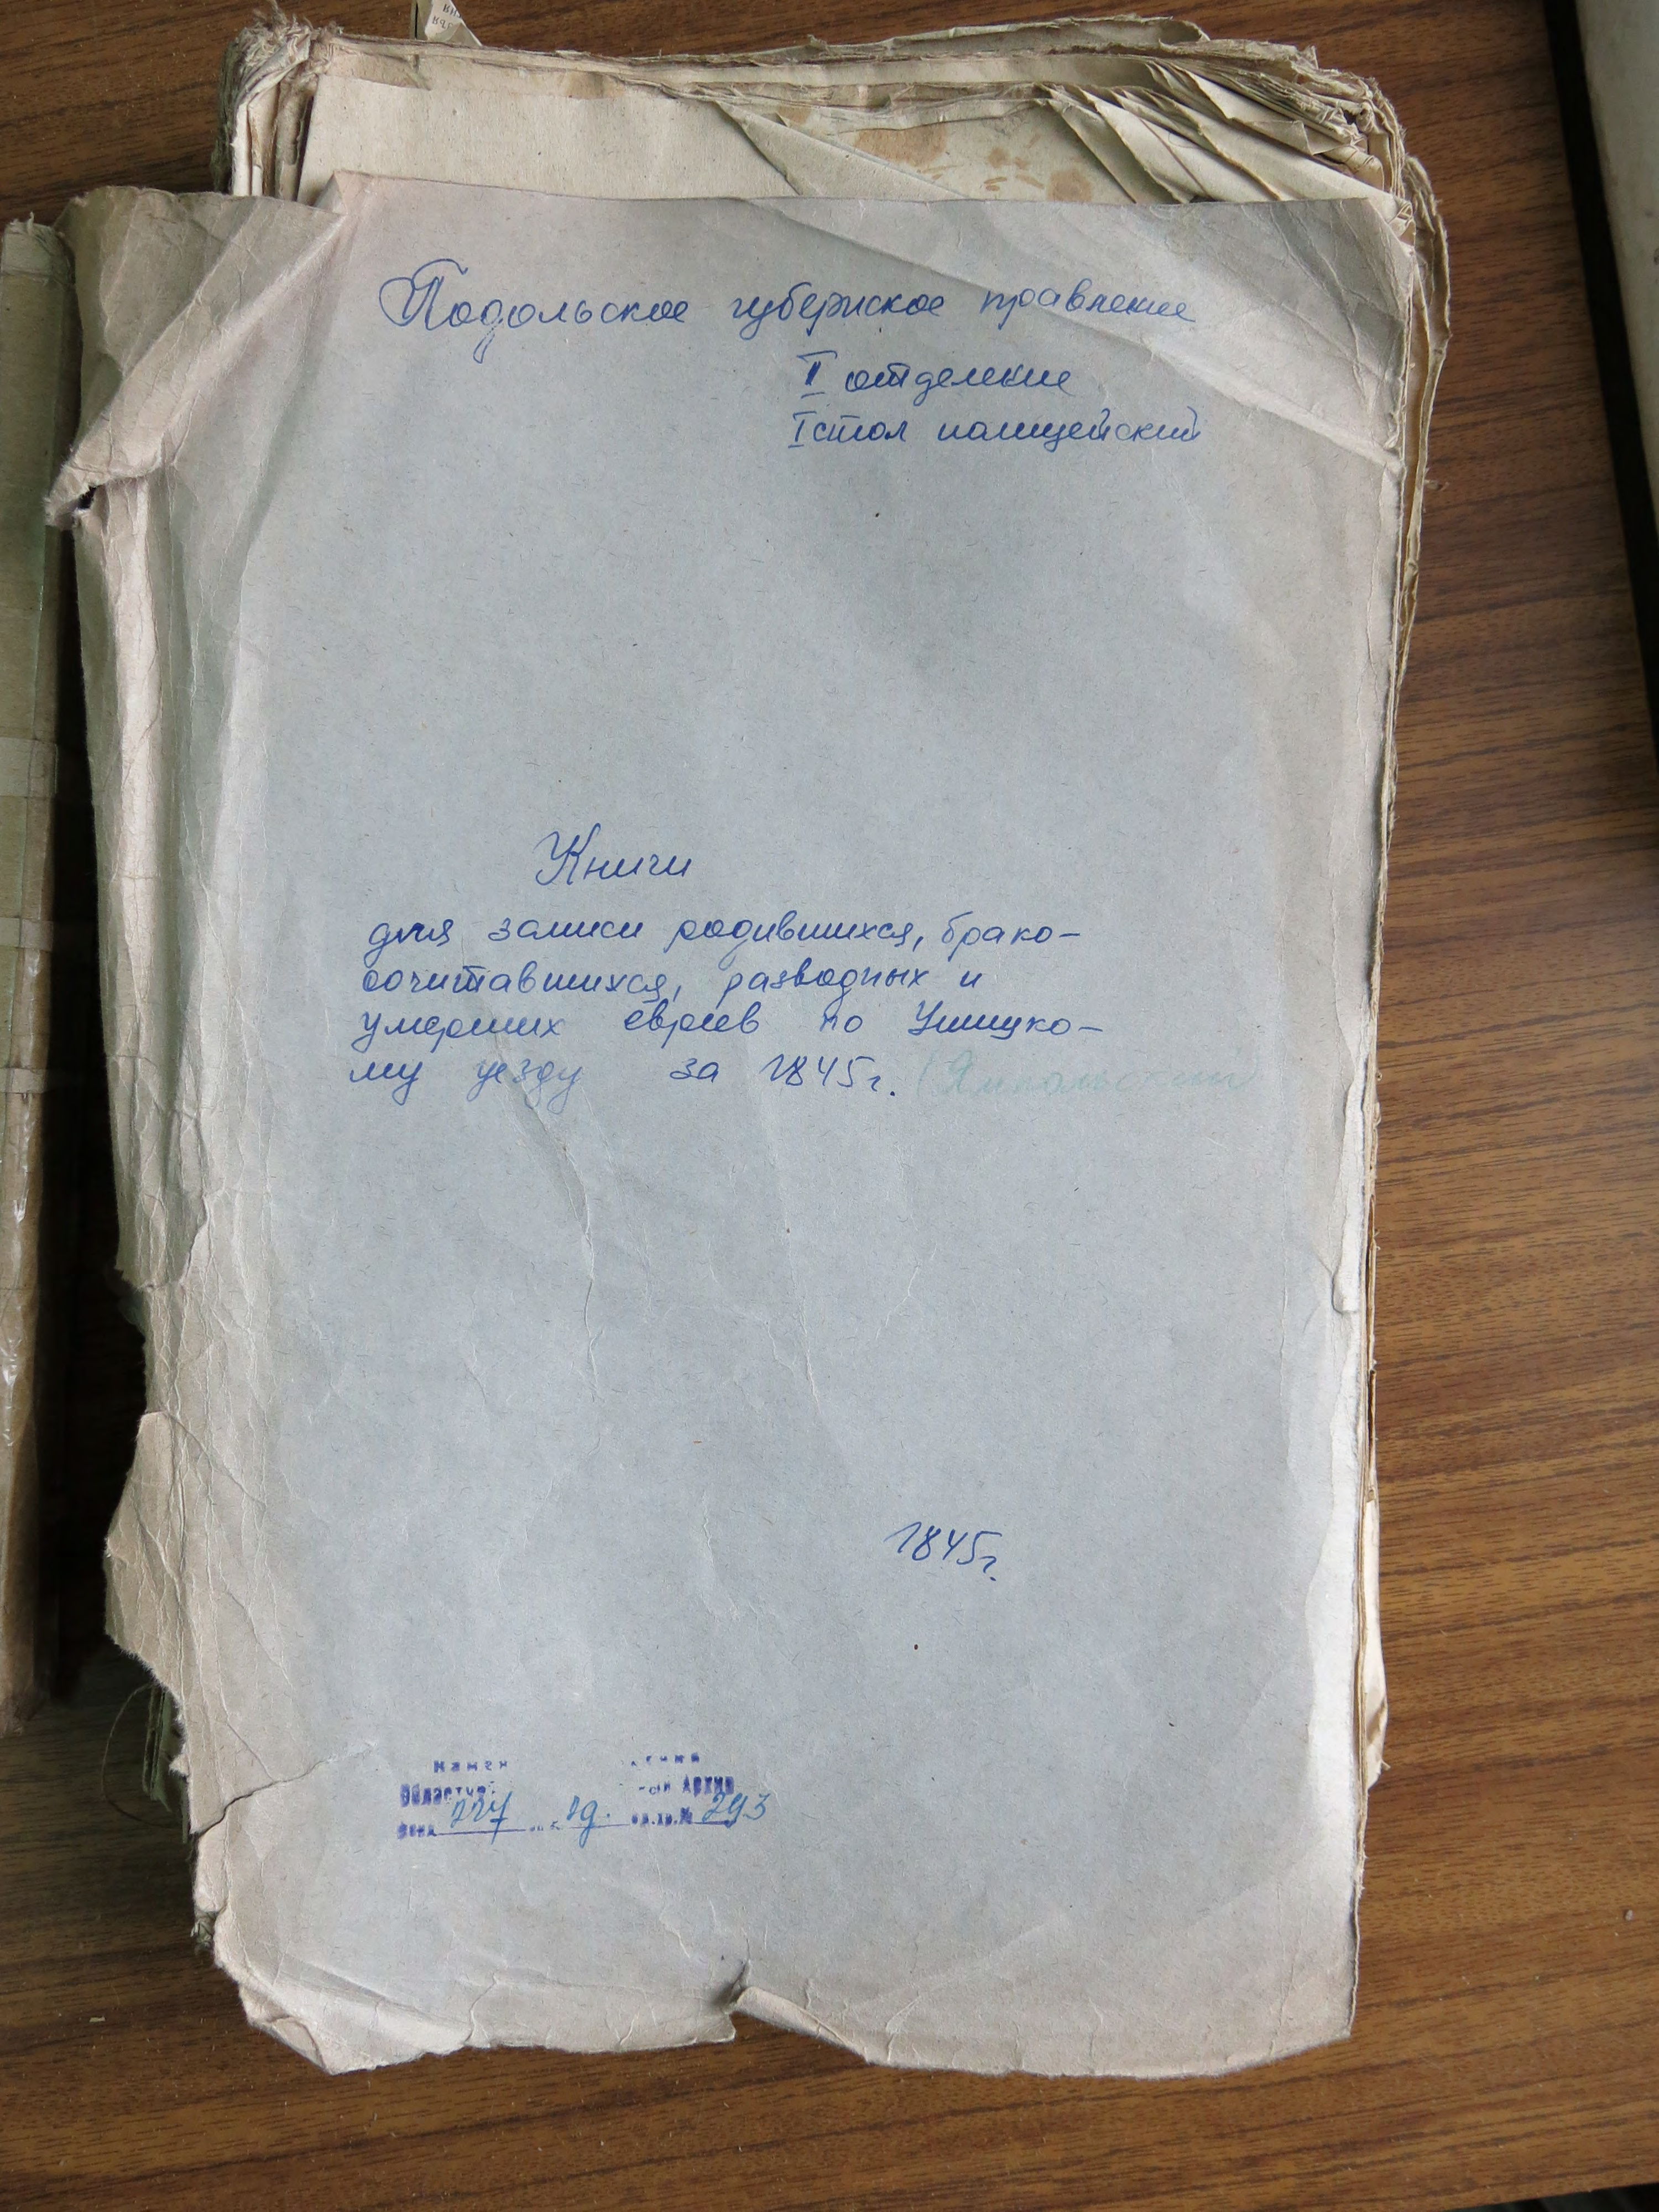 Подольское губернское правление
II отделение
I стол полицейский
Книги
для записи родившихся, брако-
сочитавшихся, разводных и
умерших евреев по Ушицко-
му уезду за 1845г.
1845г.
Камен
Областу Архив
Фонд 227 оп. 2д. ед.хр.№ 293